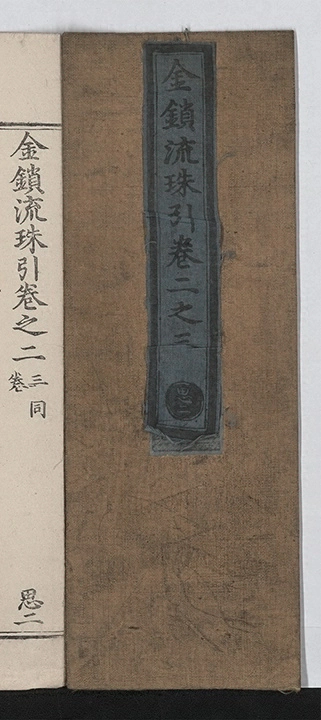 金鎖流珠引卷二之三
思二
金鎖流珠引卷之二
三同
卷
思二